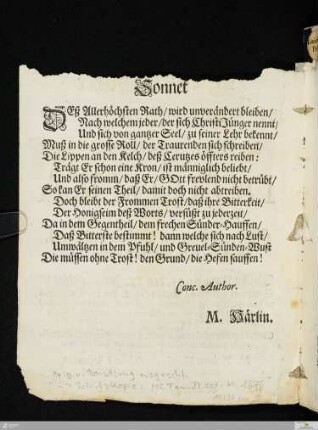 Sonnet
DEß Allerhöchsten Rath/ wird unverändert bleiben/
Nach welchem jeder/ der sich Christi Jünger nennt/
Und sich von gantzer Seel/ zu seiner Lehr bekennt/
Muß in die grosse Roll/ der Traurenden sich schreiben/
Die Lippen an den Kelch/ deß Creutzes öffters reiben:
Trägt Er schon eine Kron/ ist männiglich beliebt/
Und also fromm/ daß Er/ GOtt frevlend nicht betrübt/
So kan Er seinen Theil/ damit doch nicht abtreiben.
Doch bleibt der Frommen Trost/ daß ihre Bitterkeit/
Der Honigseim deß Worts/ versüßt zu jederzeit/
Da in dem Gegentheil/ dem frechen Sünder-Hauffen/
Daß Bitterste bestimmt! dann welche sich nach Lust/
Umwältzen in dem Pfuhl/ und Greuel-Sünden-Wust
Die müssen ohne Trost! den Grund/ die Hefen sauffen!
Conc. Author.
M. Härlin.